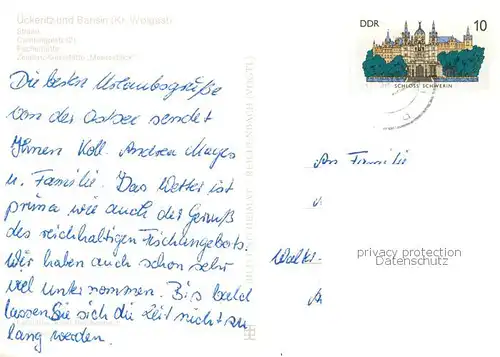 Ückeritz und Bansin (Kr. Wolgast)
Strand
Campingplatz (2)
Fischerhütte
Zentrale Gaststätte "Meeresblick"
Die besten Urlaubsgrüße
von der Ostsee sendet
Ihnen Koll. Andrea Mayes
u. Familie. Das Wetter ist
prima wie auch der Genuß
des reichhaltigen Fischangebots.
Wir haben auch schon sehr
viel unternommen. Bis bald
lassen Sie sich die Zeit nicht zu
lang werden.
DDR 10
SCHLOSS SCHWERIN
An Familie
Walter
privacy protection
Datenschutz